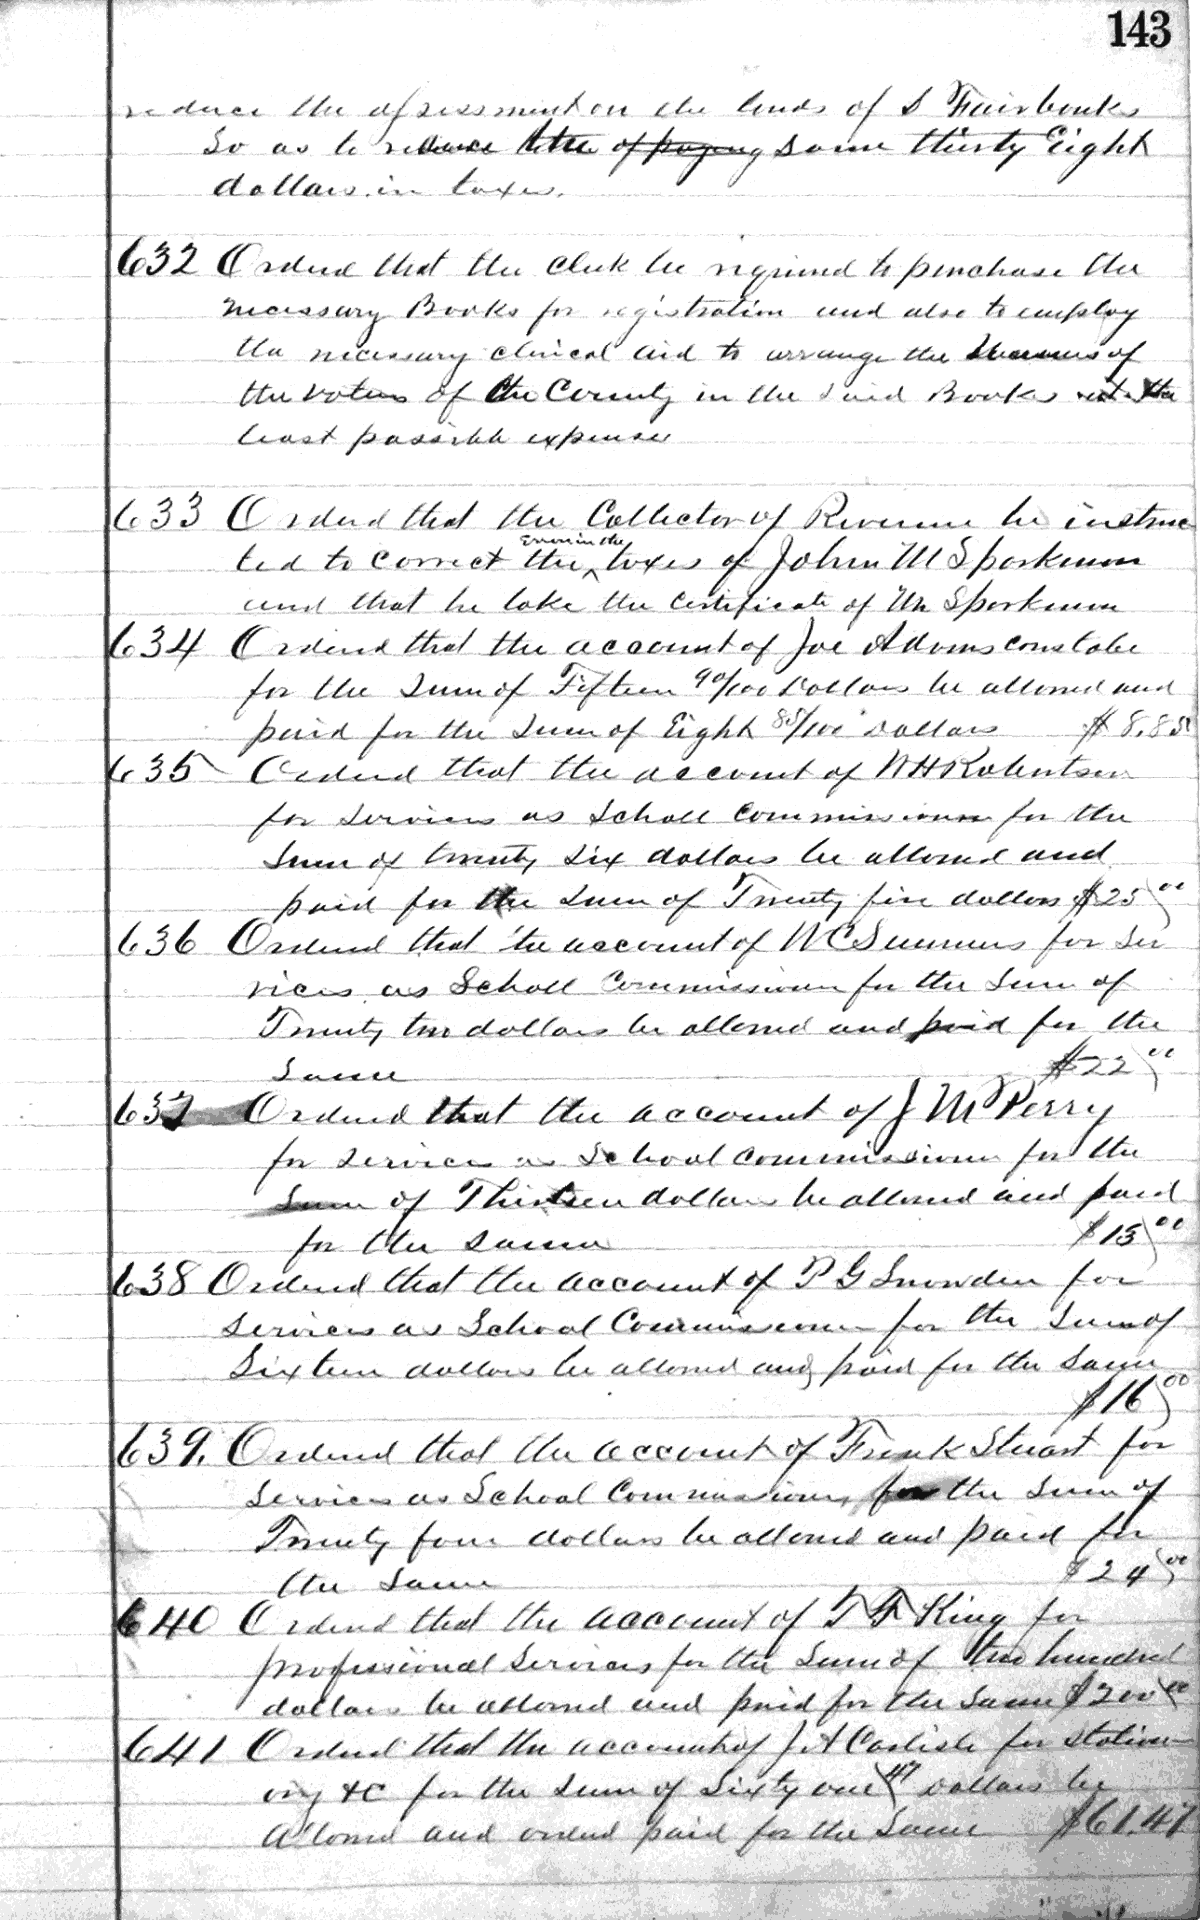 143
reduce the assessment on the lands of S Fairbanks
So as to reduce some thirty Eight
dollars in taxes.
632 Ordered that the Clerk be required to purchase the
necessary Books for registration and also to employ
the necessary clerical aid to arrange the names of
the voters of the County in the said Books at the
least possible expense
633 Ordered that the Collector of Revenue be instruc
Error in the
ted to correct the taxes of John M Sparkman
and that he take the certificate of Mr Sparkman
634 Ordered that the account of Joe Adams constable
for the Sum of Fifteen 90/100 Dollars be allowed and
paid for the Sum of Eight 85/100 Dollars $8.85
635 Ordered that the account of W H Robertson
for services as Scholl Commissioner for the
Sum of twenty six dollars be allowed and
paid for the Sum of Twenty five dollars $25 00
636 Ordered that the account of W C Summers for Ser
vices as Scholl Commissioner for the Sum of
Twenty two dollars be allowed and paid for the
Same $22 00
637 Ordered that the account of J M Perry
for services as School commissioner for the
Sum of Thirteen dollars be allowed and paid
for the same $13 00
638 Ordered that the account of P G Snowden for
services as School Commissioner for the Sum of
Sixteen dollars be allowed and paid for the Same
$16 00
639. Ordered that the account of Frank Stuart for
Services as School Commissioner for the Sum of
Twenty four dollars be allowed and paid for
the Same $24 00
640 Ordered that the account of T F King for
professional Services for the Sum of two hundred
dollars be allowed and paid for the Same $200 00
641 Ordered that the account of J A Carlisle for station
ory &C for the Sum of Sixty one 47 Dollars be
allowed and ordered paid for the Same $61.47